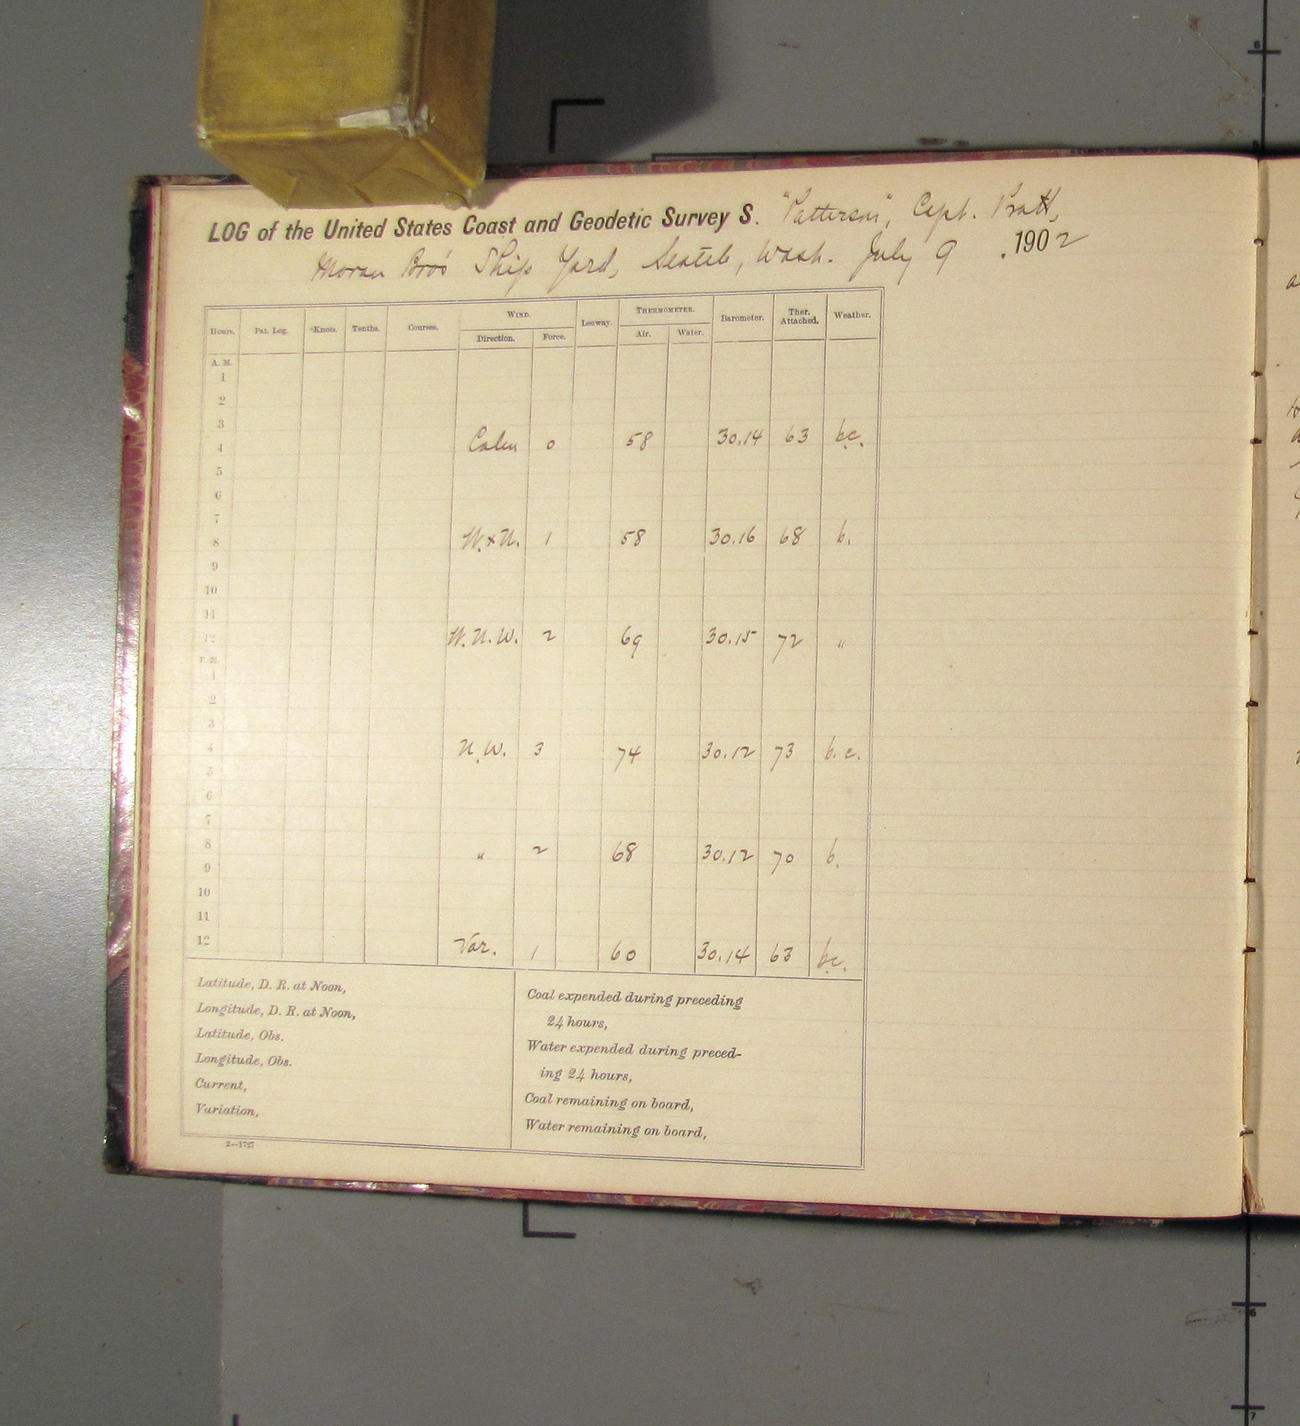 LOG of the United States Coast and Geodetic Survey S. "Patterson", Capt. Pratt,
Moran Bro's Ship Yard, Seattle, Wash. July 9, 1902
Hours. Pat. Log. Knots. Tenths. Courses. WIND. Leeway. THERMOMETER. Barometer. Ther. Attached. Weather.
Direction. Force. Air. Water.
A. M.
1
2
3
4 Calm 0 58 30.14 63 bc.
5
6
7
8 W.xN. 1 58 30.16 68 b.
9
10
11
12 W.N.W. 2 69 30.15 72 "
P. M.
1
2
3
4 N.W. 3 74 30.12 73 b.c.
5
6
7
8 " 2 68 30.12 70 b.
9
10
11
12 Var. 1 60 30.14 63 bc.
Latitude, D. R. at Noon,
Longitude, D. R. at Noon,
Latitude, Obs.
Longitude, Obs.
Current,
Variation,
Coal expended during preceding
24 hours,
Water expended during preced-
ing 24 hours,
Coal remaining on board,
Water remaining on board,
2—1727